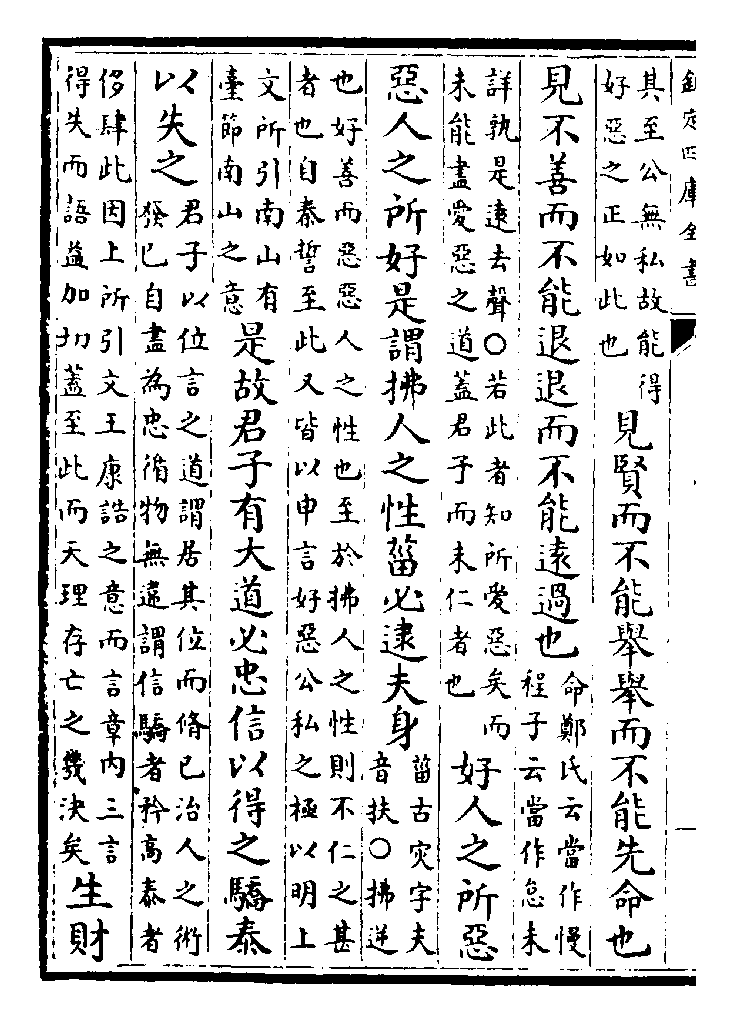 欽定四庫全書
其至公無私故能得
好惡之正如此也
見賢而不能舉舉而不能先命也
命鄭氏云當作慢
程子云當作怠未
見不善而不能退退而不能遠過也
詳孰是遠去聲○若此者知所愛惡矣而
未能盡愛惡之道蓋君子而未仁者也
好人之所惡
惡人之所好是謂拂人之性菑必逮夫身
菑古灾字夫
音扶○拂逆
也好善而惡惡人之性也至於拂人之性則不仁之甚
者也自秦誓至此又皆以申言好惡公私之極以明上
文所引南山有
臺節南山之意
是故君子有大道必忠信以得之驕泰
以失之
君子以位言之道謂居其位而脩己治人之術
發已自盡為忠循物無違謂信驕者矜高泰者
侈肆此因上所引文王康誥之意而言章內三言
得失而語益加切蓋至此而天理存亡之幾決矣
生財